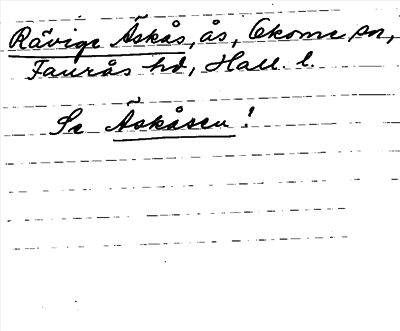 Rävige Äskås, ås, Okome sn,
Faurås hd, Hall. l.
Se Äskåsen!